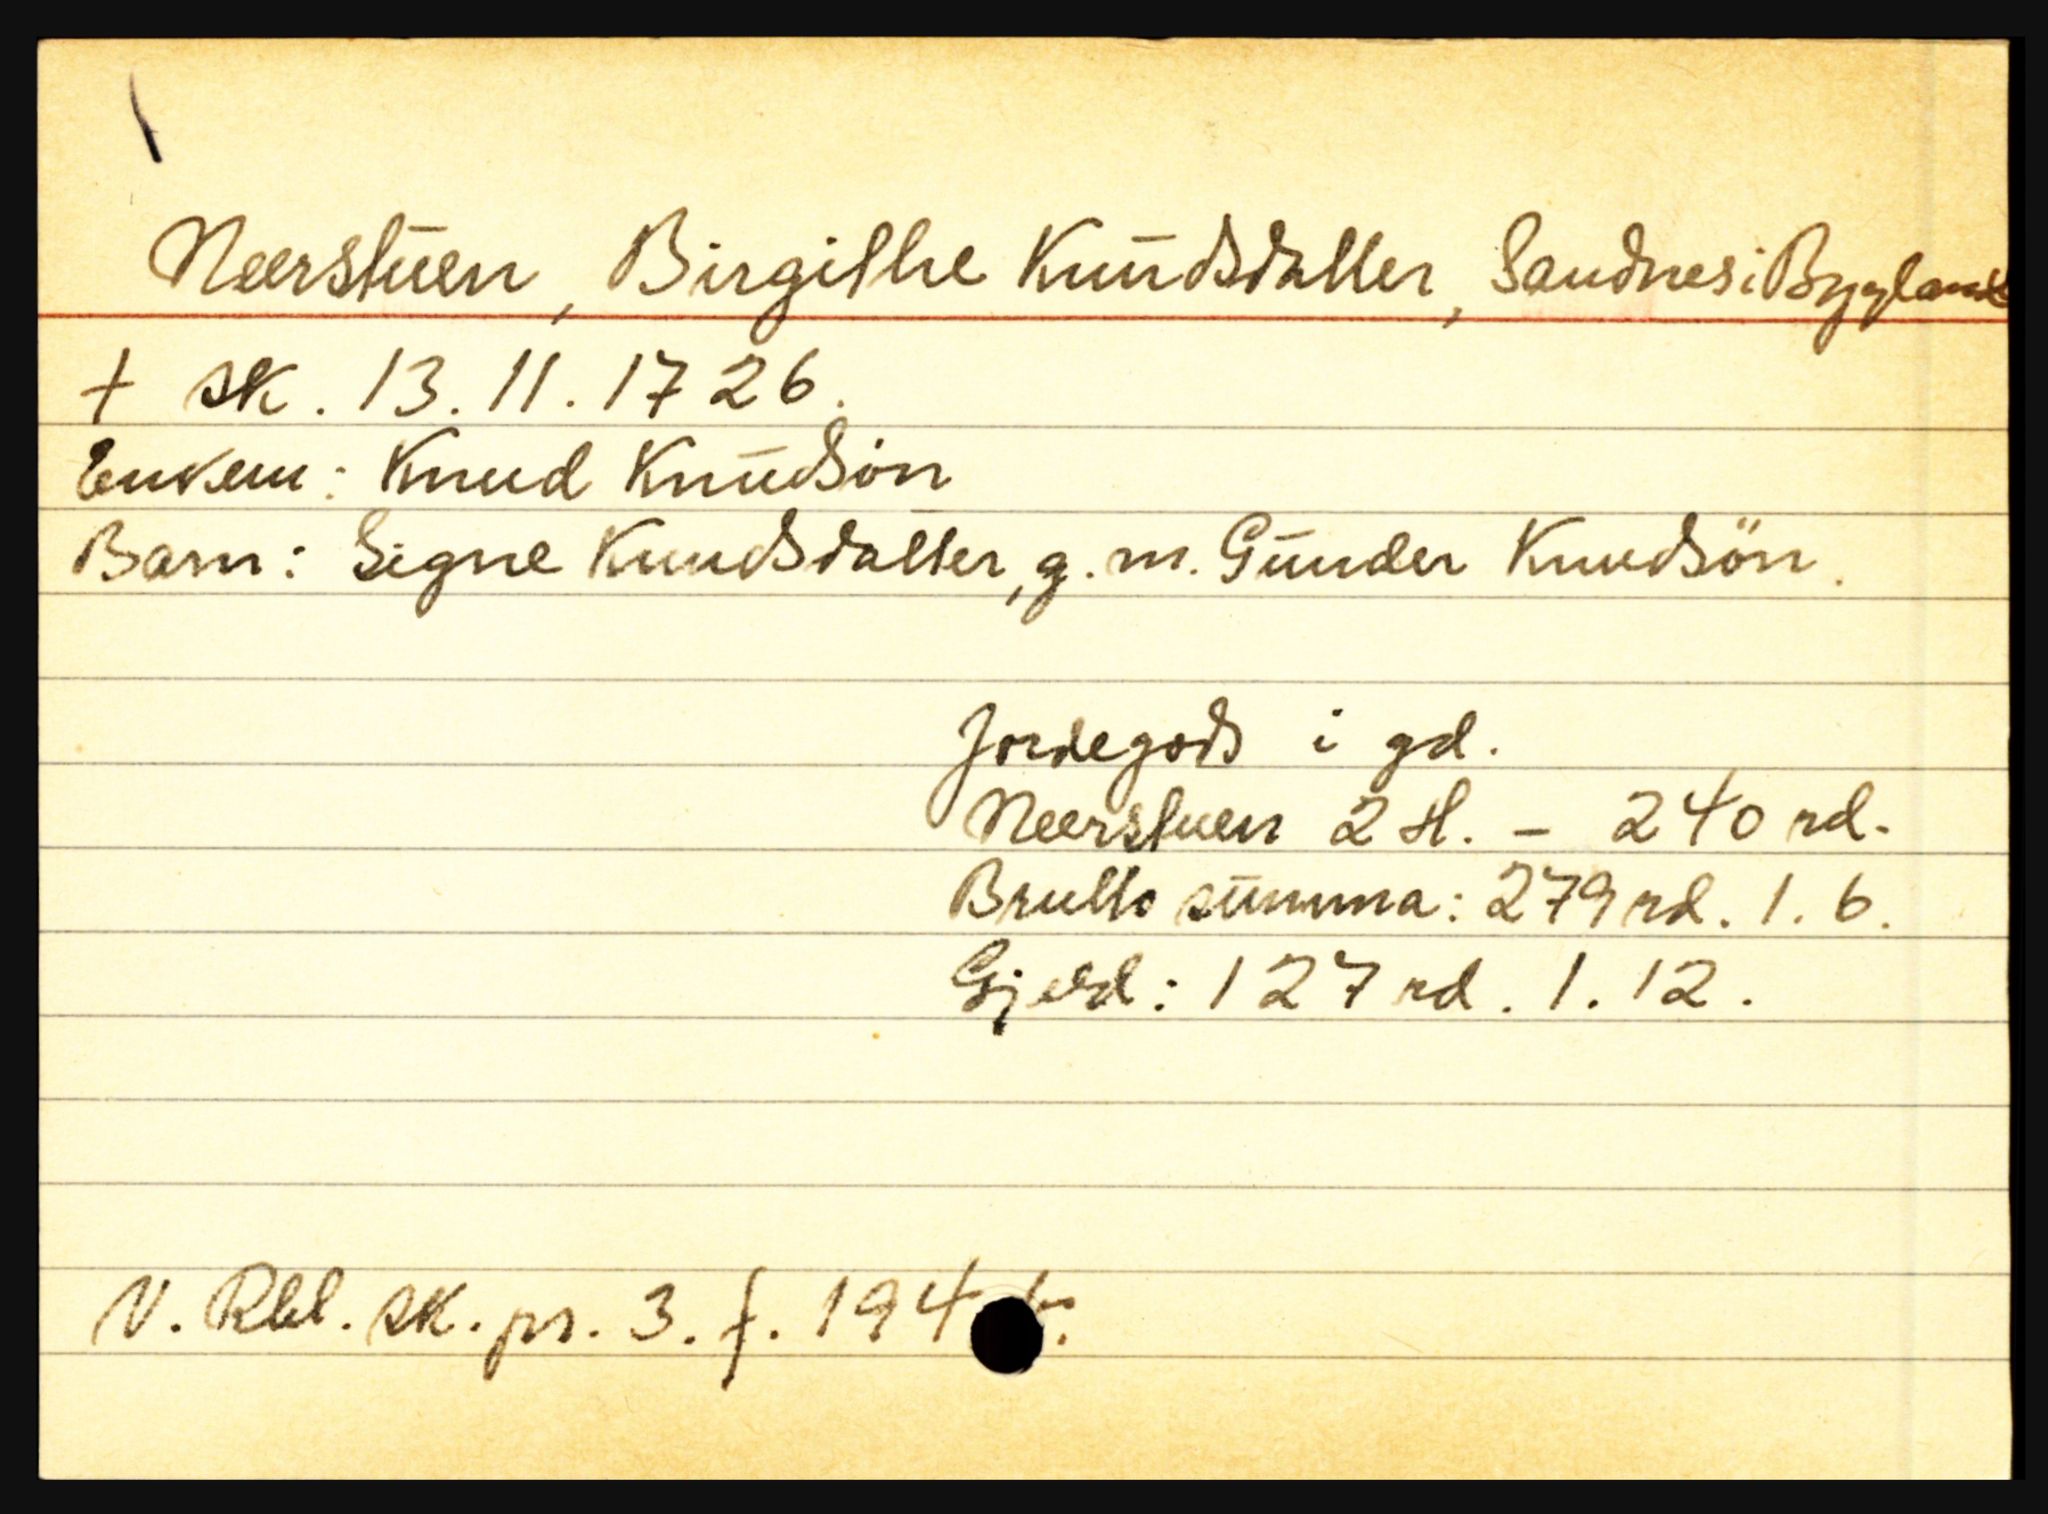 Neerstuen, Birgithe Knudsdatter, Sandnes i Bygland
+ sk. 13.11.1726.
Enkem: Knud Knudsön
Barn: Signe Knudsdatter, g. m. Gunder Knudsön.
Jordegods i gd.
Neerstuen 2 H. - 240 rd.
Brutto summa: 279 rd. 1. 6.
Gjeld: 127 rd. 1. 12.
N. Rbl. sk. pr. 3. f. 194